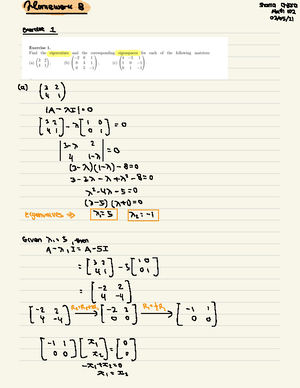 Homework 8
Exercise 1
Exercise 1.
Find the eigenvalues and the corresponding eigenspaces for each of the following matrices:
(a) (3 2
4 1)
|A - λI| = 0
[3 2
4 1] - λ [1 0
0 1] = 0
|3-λ 2
4 1-λ| = 0
(3-λ)(1-λ) - 8 = 0
3 - 3λ - λ + λ² - 8 = 0
λ² - 4λ - 5 = 0
(λ-5)(λ+1) = 0
Eigenvalues ⇒ λ₁ = 5 λ₂ = -1
Given λ₁ = 5, then
A - λ₁I = A - 5I
= [3 2
4 1] - 5 [1 0
0 1]
= [-2 2
4 -4]
[-2 2
4 -4] → [-2 2
0 0] → [-1 1
0 0]
[-1 1
0 0] [x₁
x₂] = [0
0]
-x₁ + x₂ = 0
x₁ = x₂